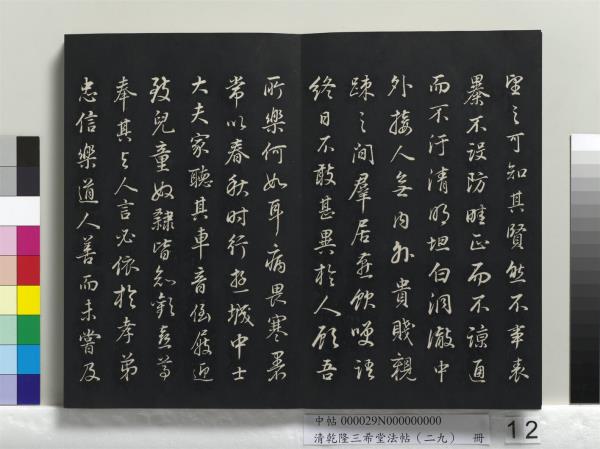 望之可知其賢然不事表
暴不設防畦正而不諒通
而不汙清明坦白洞澈中
外接人無內外貴賤親
踈之間羣居燕飲咲語
終日不敢甚異於人顧吾
所樂何如耳病畏寒暑
常以春秋时行遊城中士
大夫家聽其車音倒屣迎
致兒童奴隸皆知歡喜尊
奉其与人言必依於孝弟
忠信樂道人善而未嘗及
中帖 000029N000000000
清乾隆三希堂法帖（二九） 冊
12